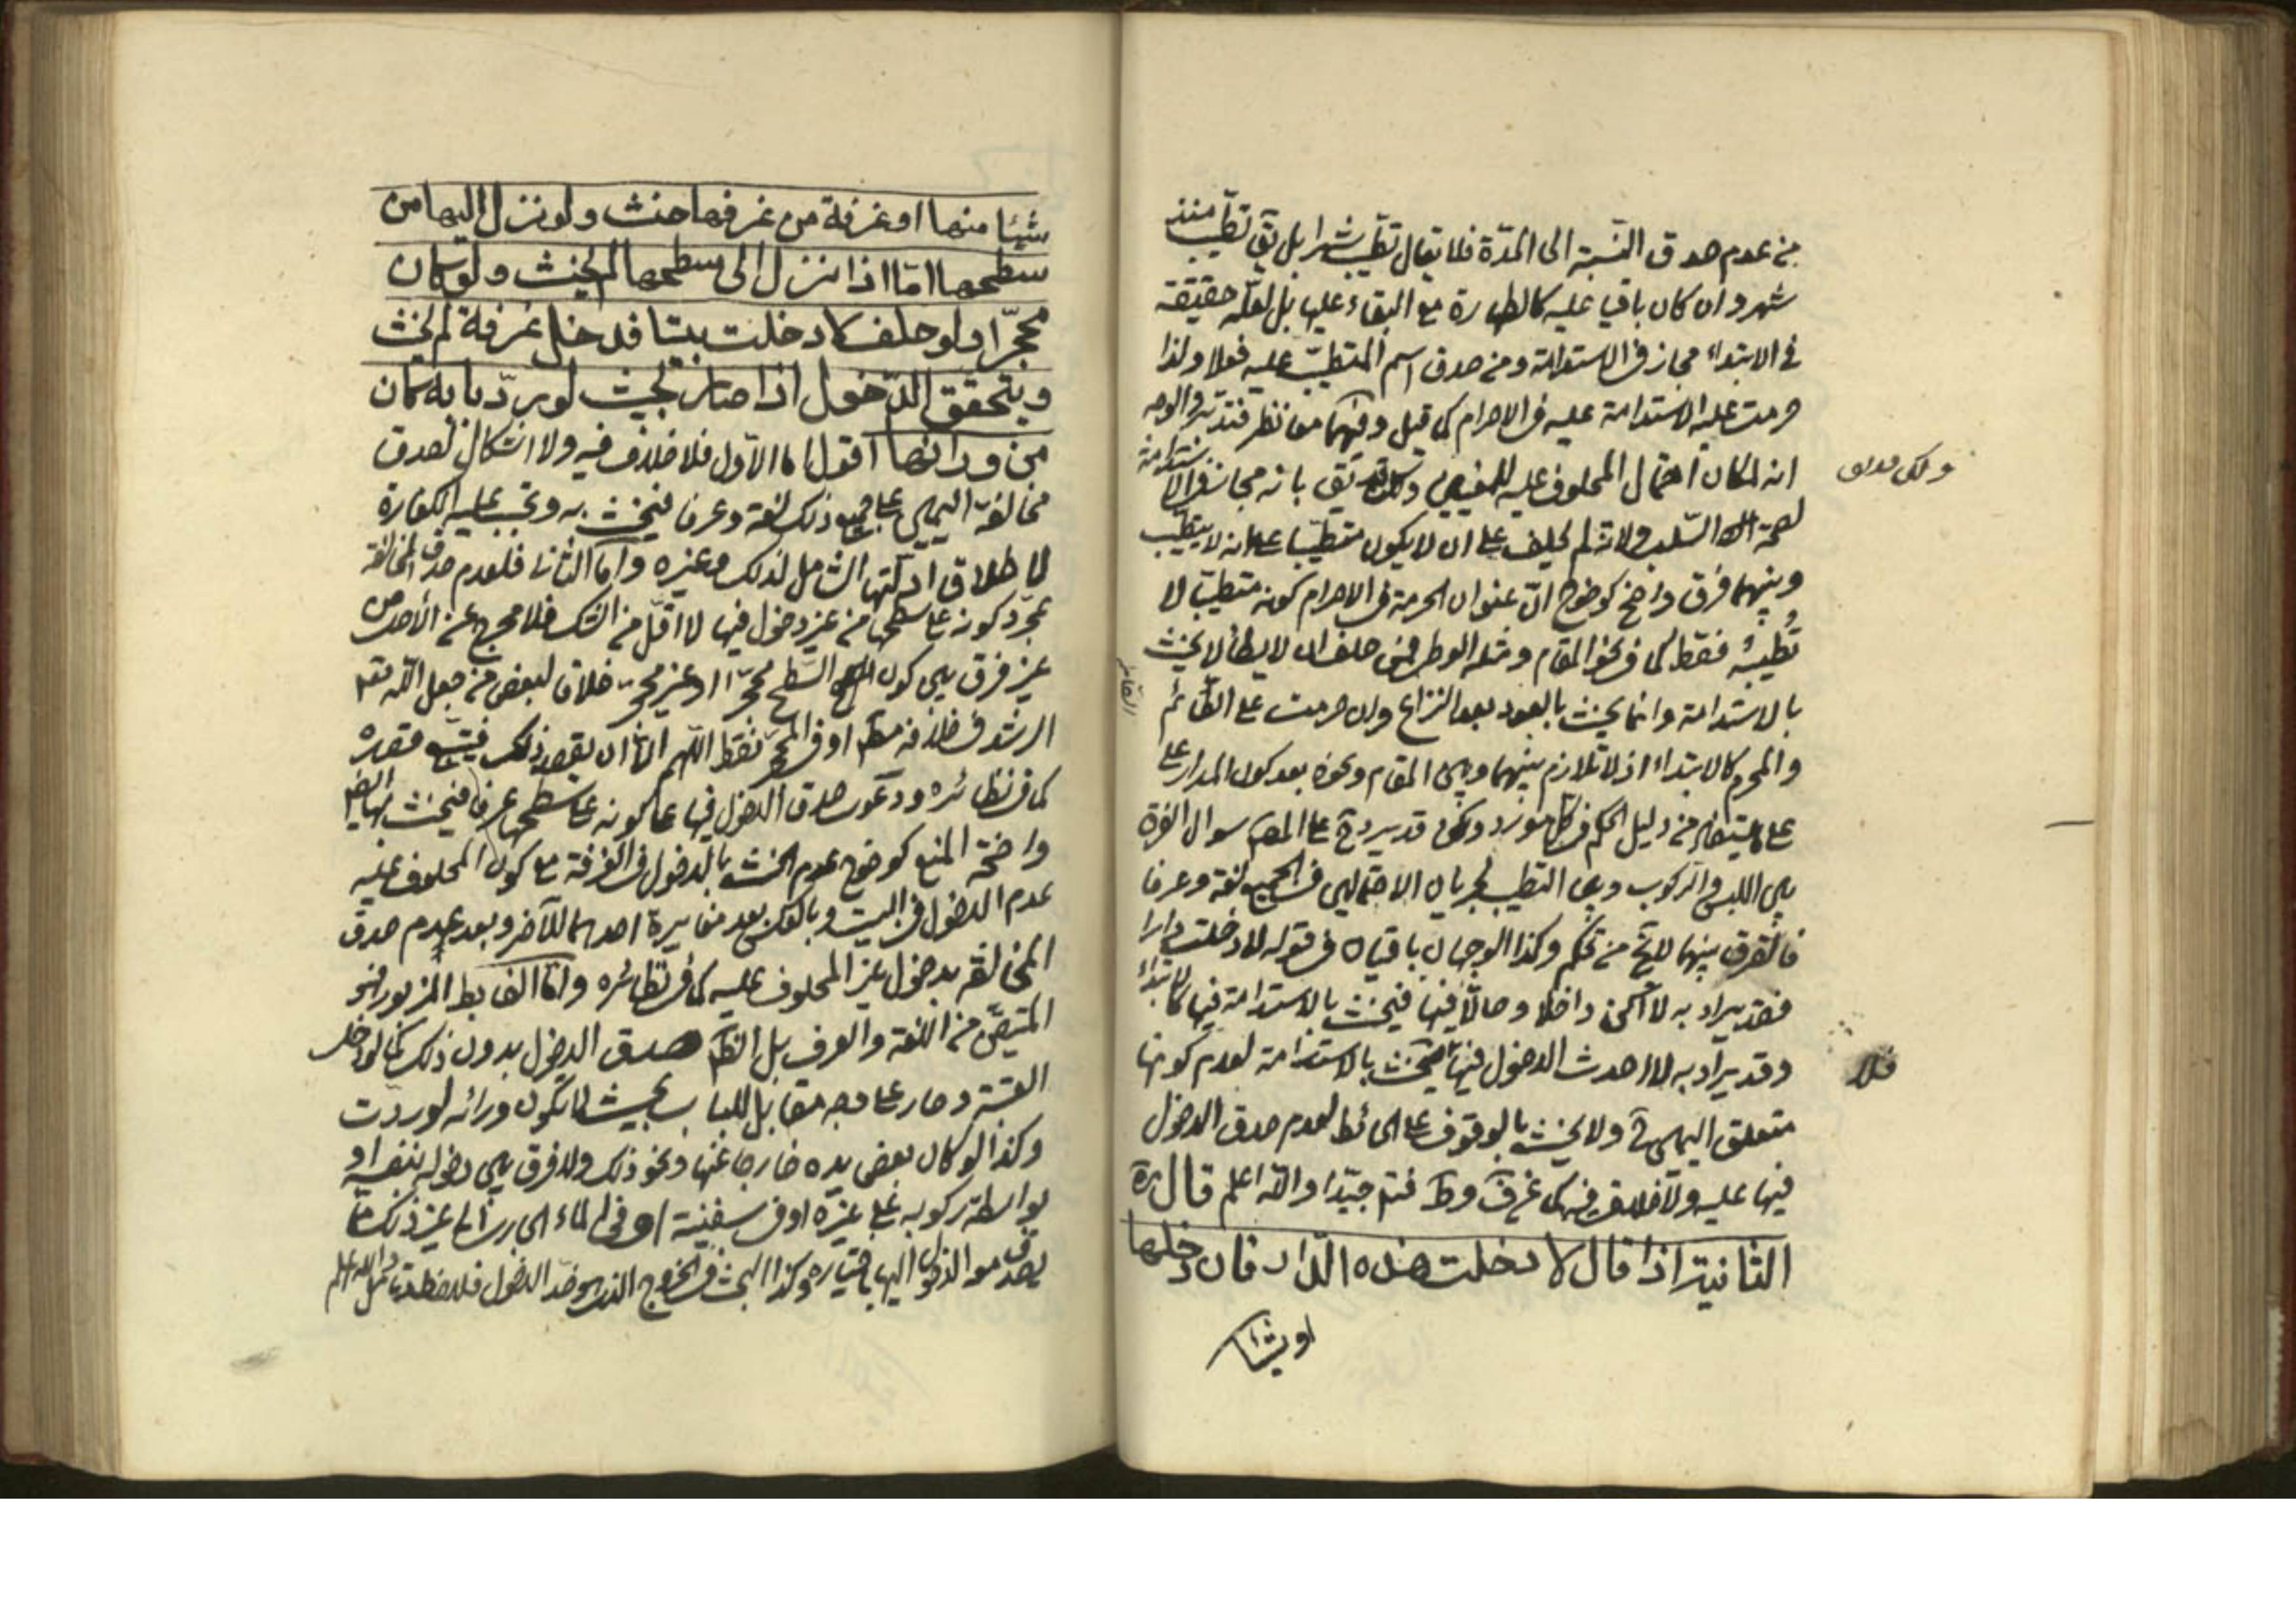 من عدم صدق النسبة الى المدّة فلا يقال تطيّب شهرا بل يق تطيّب منذ
شهر وان كان باقيا عليه كالطهارة مع البقاء عليها بل لعلّه حقيقة
في الابتداء مجاز في الاستدامة ومن صدق اسم المتطيّب عليه فعلا ولذا
حرمت عليه الاستدامة عليه في الاحرام كما قيل وفيهما معا نظر فتدبّر والوجه
انه لمكان احتمال المحلوف عليه للمعنيين يق بانه مجاز في الاستدامة
ولكن قد يق
لصحة السلب ولانه لم يحلف على ان لا يكون متطيّبا على انه لا يتطيّب
وبينهما فرق واضح كوضوح انّ عنوان الحرمة في الاحرام كونه متطيّبا لا
تطيبه فقط كما في نحو المقام ومثله الوطى فمن حلف ان لا يطأ لا يحنث
بالاستدامة وانما يحنث بالعود بعد النزاع وان حرمت على الصائم
والمحرم كالابتداء اذ لا تلازم بينهما وبين المقام ونحوه بعد كون المدار على
على من دليل الحكم في كل مورد ولكن قد يرد على المص سوال الفرق
بين اللبس والركوب وبين التطيب لجريان الاحتمالين في الجميع لغة وعرفا
فالفرق بينهما لايخ من تحكم وكذا الوجهان باقيان في قوله لا دخلت دارا
فقد يراد به لا اكون داخلا وحالّا فيها فيحنث بالاستدامة فيها كالابتداء
وقد يراد به لا احدث الدخول فيها يحنث بالاستدامة لعدم كونها
فلا
متعلق اليمين ولا يحنث بالوقوف على الحائط لعدم صدق الدخول
فيها عليه ولا خلاف فيه كما عن ف وط فتم جيّدا والله اعلم قال ره
الثانية اذا قال لا دخلت هذه الدار فان دخلها
او شيئا
شيئا منها او غرفة من غرفها حنث ولو نزل اليها من
سطحها امّا اذا نزل الى سطحها لم يحنث ولو كان
محجّرا ولو حلف لا دخلت بيتا فدخل غرفة لم يحنث
ويتحقق الدّخول اذا صار بحيث لو ردّ بابه كان
من ورائها اقول اما الاول فلا خلاف فيه ولا اشكال لصدق
مخالفة اليمين على جميع ذلك لغة وعرفا فيحنث به وتجب عليه الكفارة
لاطلاق ادلّتها الشامل لذلك وغيره وامّا الثاني فلعدم صدق المخالفة
بمجرّد كونه على سطحها من غير دخول فيها لا اقلّ من الشك فلا مخرج عن الأصل من
غير فرق بين كون السّطح محجّرا او غير محجّر خلافا لبعض من جعل الله تعم
الرشد في خلافه مط او في المحجّر فقط اللّهم الّا ان يقصد ذلك فيتبع قصده
كما في نظائره ودعوى صدق الدخول فيها على كونه على سطحها عرفا فيحنث بها ايضا
واضحة المنع كوضوح عدم الحنث بالدخول في الغرفة مع كون المحلوف عليه
عدم الدخول في البيت وبالعكس بعد مغايرة احدهما للآخر وبعد عدم صدق
المخالفة بدخول غير المحلوف عليه كما في نظائره وامّا الضابط المزبور فهو
المتيقّن من اللغة والعرف بل الظ صدق الدخول بدون ذلك كما لو دخل
وصار على وجه مقابل للباب بحيث لا يكون ورائه لو ردّت
وكذا لو كان بعض يده خارجا عنها ونحو ذلك ولا فرق بين دخوله بنفسه او
بواسطة ركوبه على غيره او في سفينة او في الماء الى غير ذلك ممّا
يصدق معه الدخول اليها باختياره وكذا البحث في الخروج الذي هو ضدّ الدخول والله اعلم